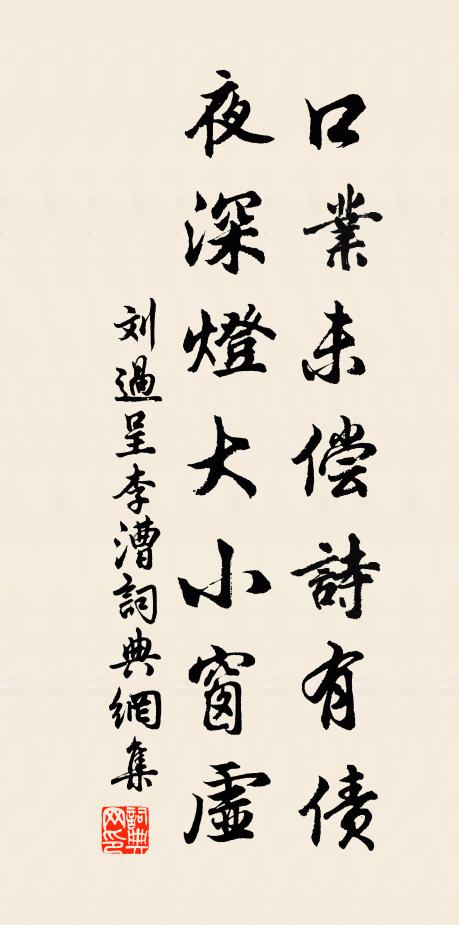 口業未偿詩有债
夜深燈大小窗虛
刘過呈李漕詞典網集
詞典網印